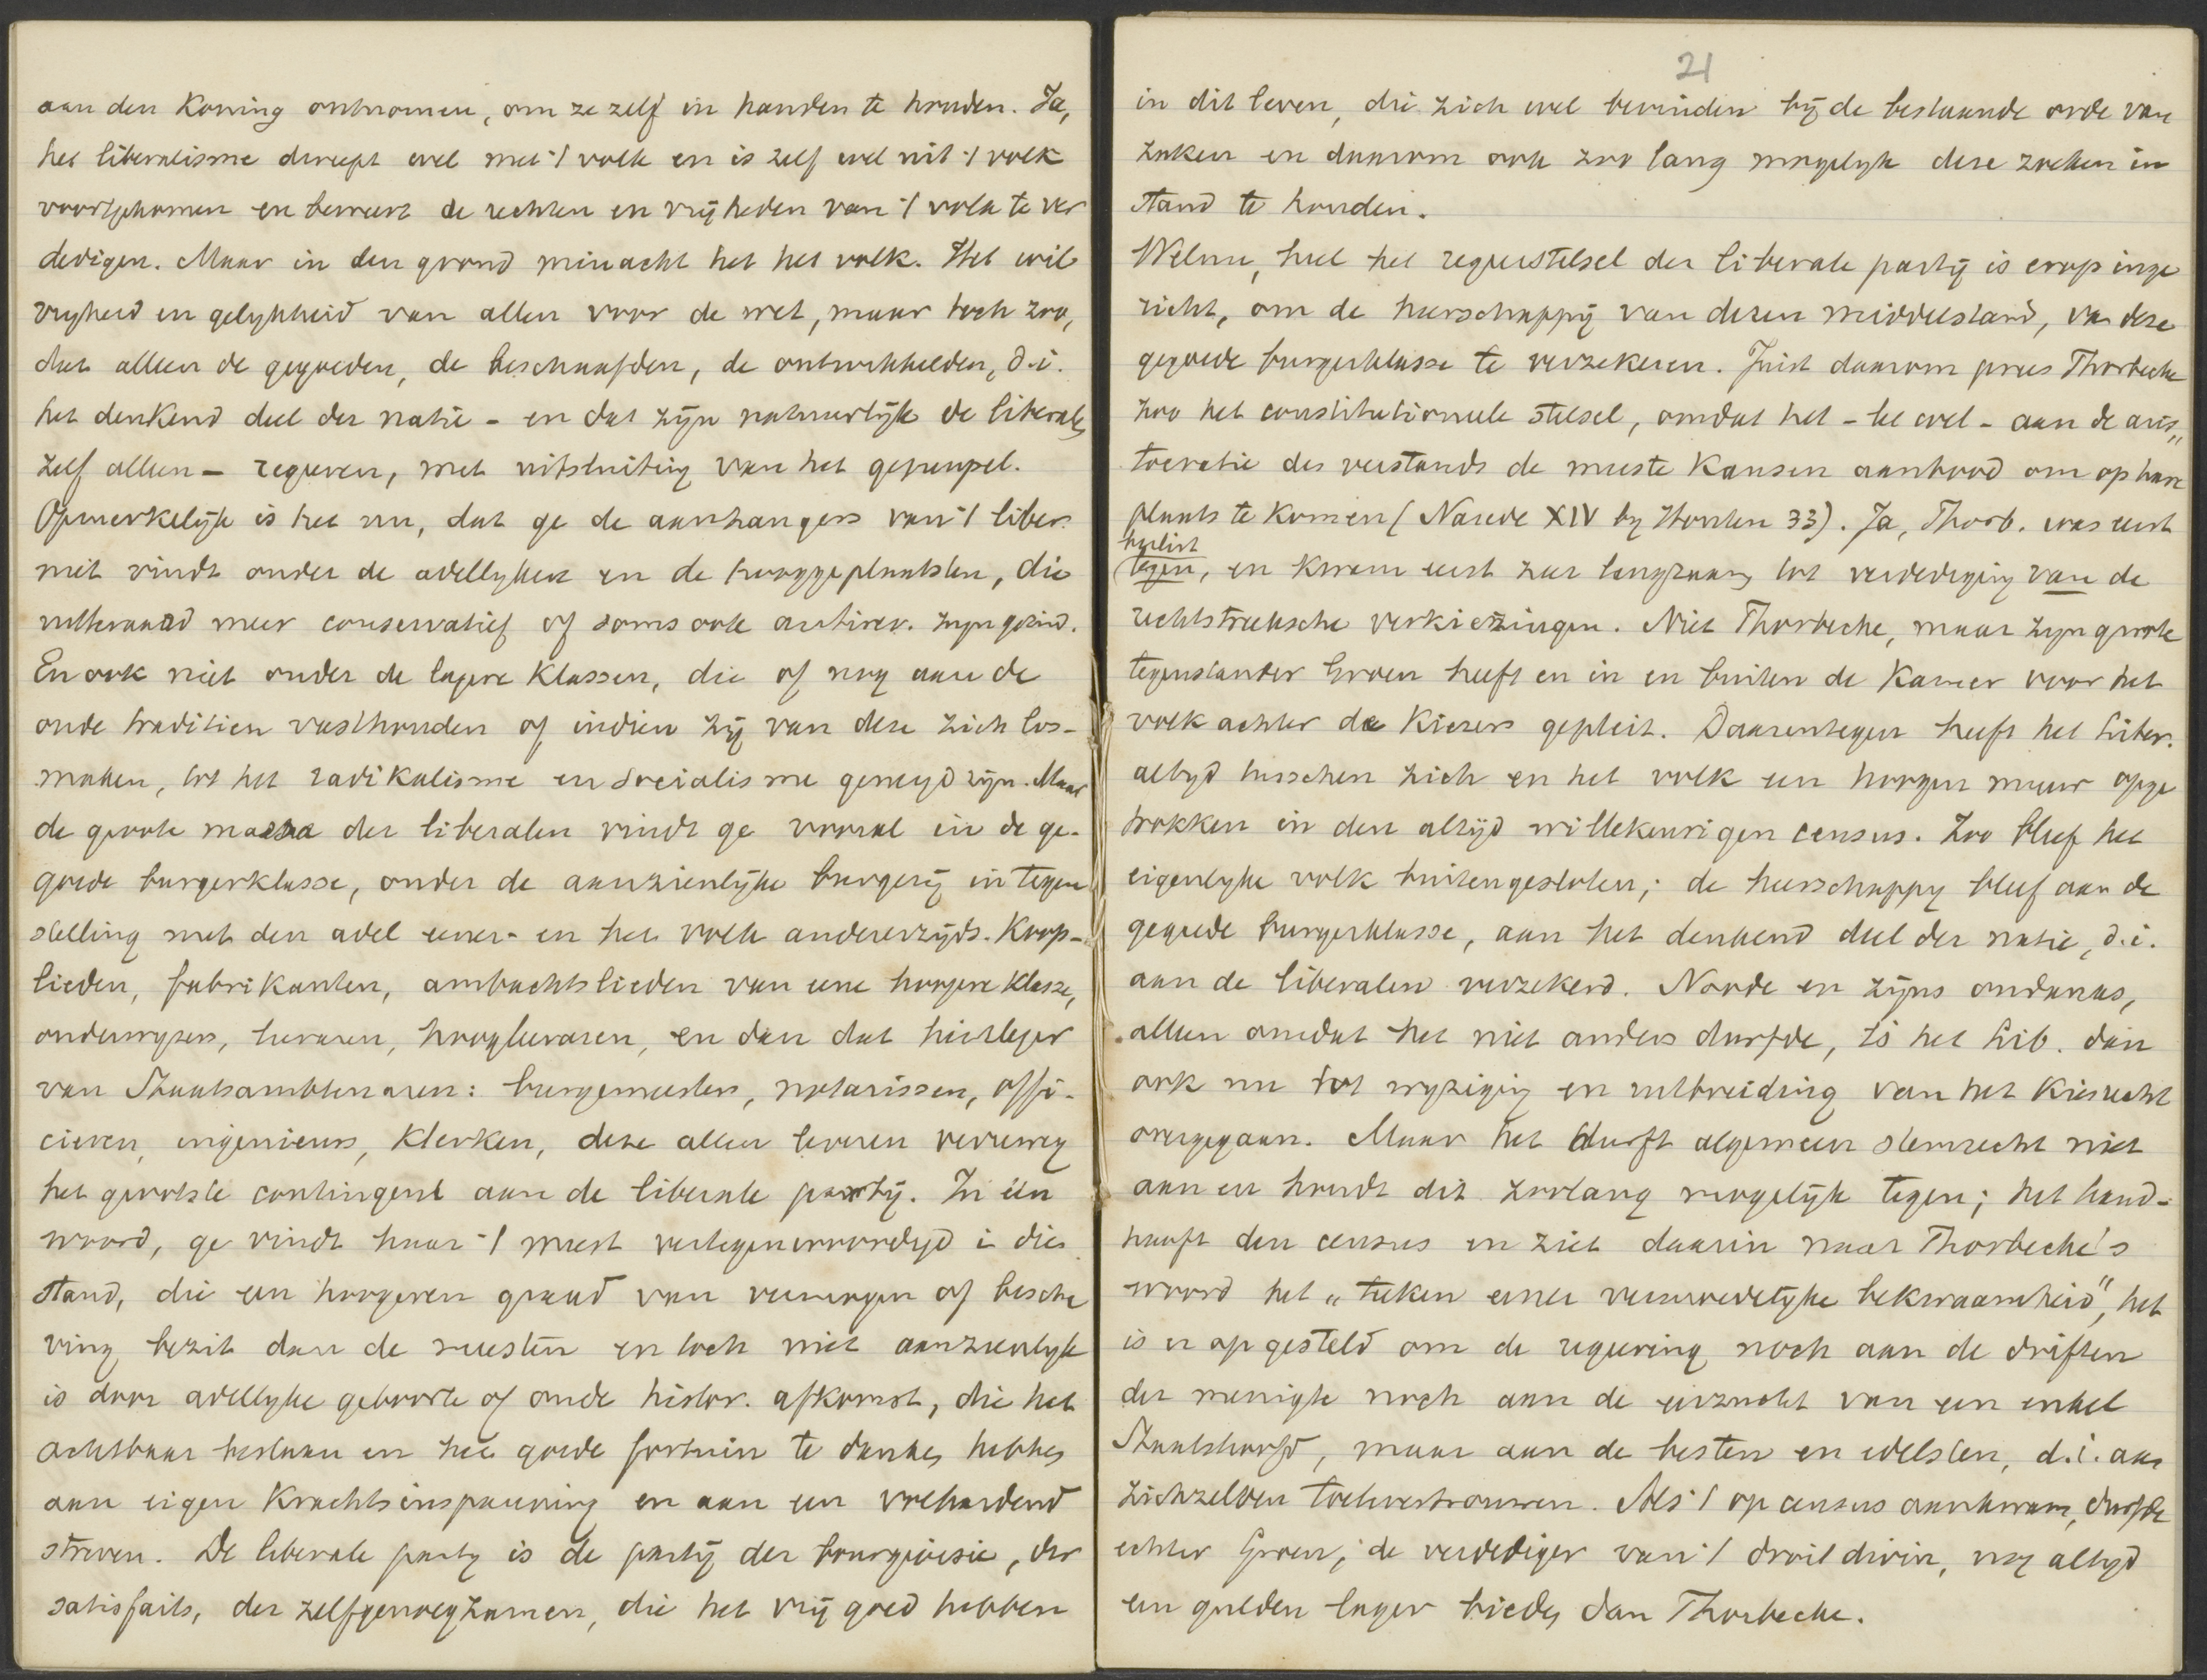 aan den Koning ontnomen, om ze zelf in handen te houden. Ja,
het liberalisme dweept wel met 't volk en is zelf wel uit 't volk
voortgekomen en beweert de rechten en vrijheden van 't volk te ver
dedigen. Maar in den grond minacht het het volk. Het wil
vryheid en gelykheid van allen voor de wet, maar toch zoo,
dat alleen de gegoeden, de beschaafden, de ontwikkelden, d.i.
het denkend deel der natie - en dat zijn natuurlijk de liberalen
zelf alleen - regeeren, met uitsluiting van het gepeupel.
Opmerkelijk is het nu, dat ge de aanhangers van 't liber.
niet vindt onder de adellyken en de hooggeplaatsten, die
uiteraard meer conservatief of soms ook antirev. zyn gezind.
En ook niet onder de lagere Klassen, die of nog aan de
oude tradities vasthouden of indien zij van deze zich los-
maken, tot het radikalisme en socialisme geneigd zijn. Maar
de groote massa der liberalen vindt ge vooral in de ge-
goede burgerklasse, onder de aanzienlijke burgerij in tegen
stelling met den adel eener- en het volk andererzijds. Koop-
lieden, fabrikanten, ambachtslieden van eene hoogere klasse,
onderwyzers, leeraren, hoogleeraren, en dan dat heirleger
van Staatsambtenaren: burgemeesters, notarissen, offi-
cieren, ingenieurs, klerken, deze allen leveren verreweg
het grootste contingent aan de liberale partij. In één
woord, ge vindt haar 't meest vertegenwoordigd i dien
stand, die een hoogeren graad van vermogen of bescha
ving bezit dan de meesten en toch niet aanzienlyk
is door adellyke geboorte of oude histor. afkomst, die het
achtbaar bestaan en het goede fortuin te danken hebben
aan eigen Krachtsinspanning en aan een volhardend
streven. De liberale party is de partij der bourgeoisie, der
satisfaits, der zelfgenoegzamen, die het vrij goed hebben
21
in dit leven, die zich wel bevinden bij de bestaande orde van
zaken en daarom ook zoo lang mogelyk deze zoeken in
stand te houden.
Welnu, heel het regeerstelsel der liberale partij is erop inge
richt, om de heerschappij van dezen middelstand, van deze
gegoede burgerklasse te verzekeren. Juist daarom prees Thorbecke
zoo het constitutioneele stelsel, omdat het - let wel - aan de aris„
tocratie des verstands de meeste Kansen aanbood om op hare
plaats te komen (Narede XIV by Houten 33). Ja, Thorb. was eerst
beslist
tegen, en kwam eerst zeer langzaam tot verdediging van de
rechtstreeksche verkiezingen. Niet Thorbecke, maar zyn groote
tegenstander Groen heeft en in en buiten de Kamer voor het
volk achter de Kiezers gepleit. Daarentegen heeft het liber.
altyd tusschen zich en het volk een hoogen muur opge
trokken in den altijd willekeurigen census. Zoo bleef het
eigenlyke volk buitengesloten; de heerschappy bleef aan de
gegoede burgerklasse, aan het denkend deel der natie, d.i.
aan de liberalen verzekerd. Noode en zijns ondanks,
alleen omdat het niet anders durfde, is het lib. dan
ook nu tot wyziging en uitbreiding van het Kiesrecht
overgegaan. Maar het durft algemeen stemrecht niet
aan en houdt dit zoolang mogelijk tegen; het hand-
haaft den census en ziet daarin naar Thorbecke's
woord het „teeken eener vermoedelijke bekwaamheid", het
is er op gesteld om de regeering noch aan de driften
der menigte noch aan de eerzucht van een enkel
Staatshoofd, maar aan de besten en edelsten, d.i. aan
zichzelven toe te vertrouwen. Als 't op census aankwam, durfde
echter Groen, de verdediger van 't droit divin, nog altyd
een gulden lager bieden dan Thorbecke.